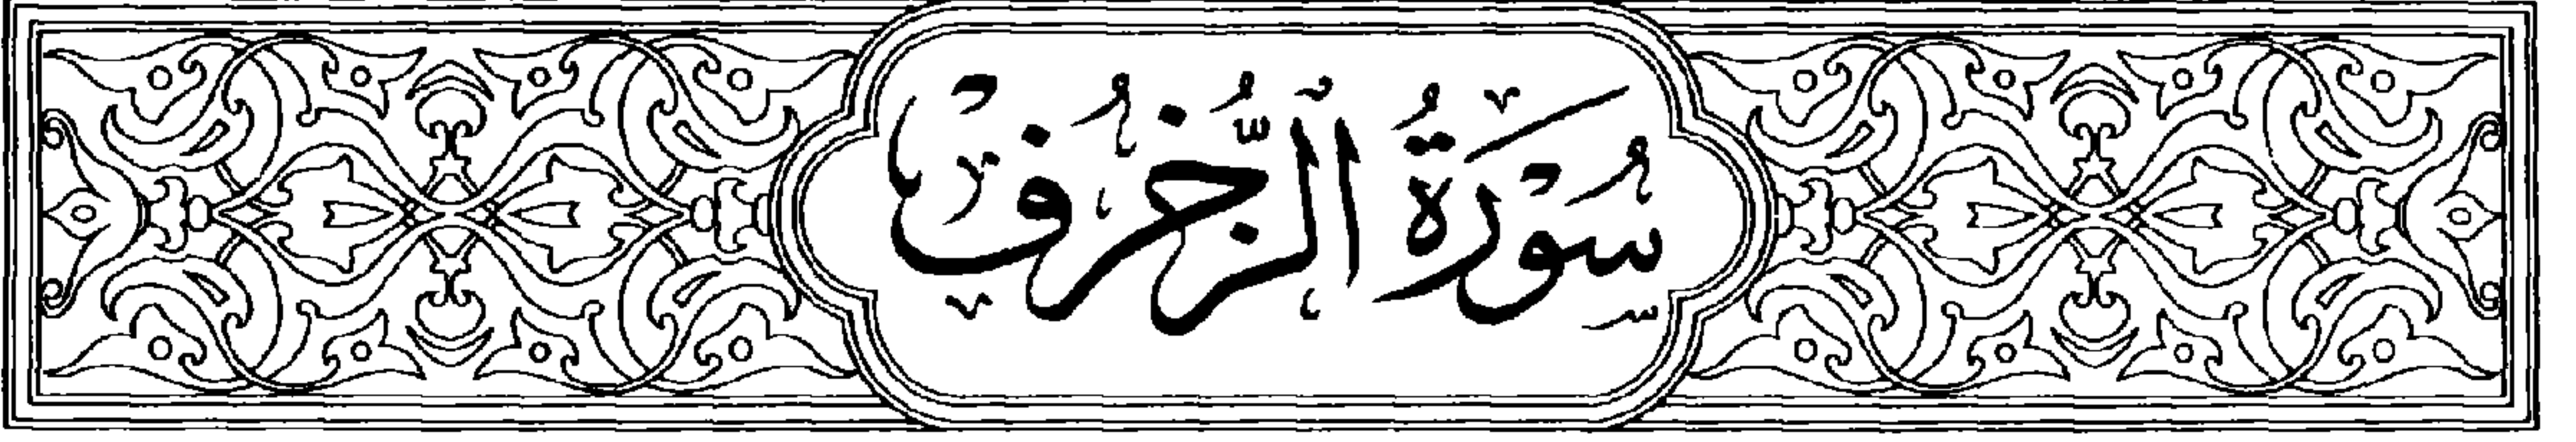 سُورَةُ ٱلزُّخۡرُفِ